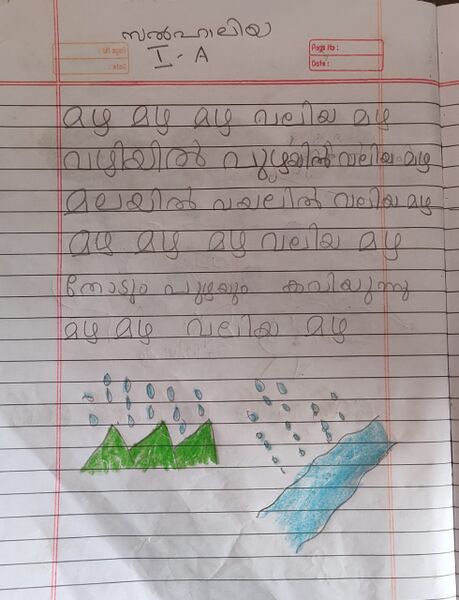 സൽഹാലിയ
I - A
Page No :
Date :
മഴ മഴ മഴ വലിയ മഴ
വഴിയിൽ പുഴയിൽ വലിയ മഴ
മലയിൽ വയലിൽ വലിയ മഴ
മഴ മഴ മഴ വലിയ മഴ
തോടും പുഴയും കവിയുന്നു
മഴ മഴ വലിയ മഴ